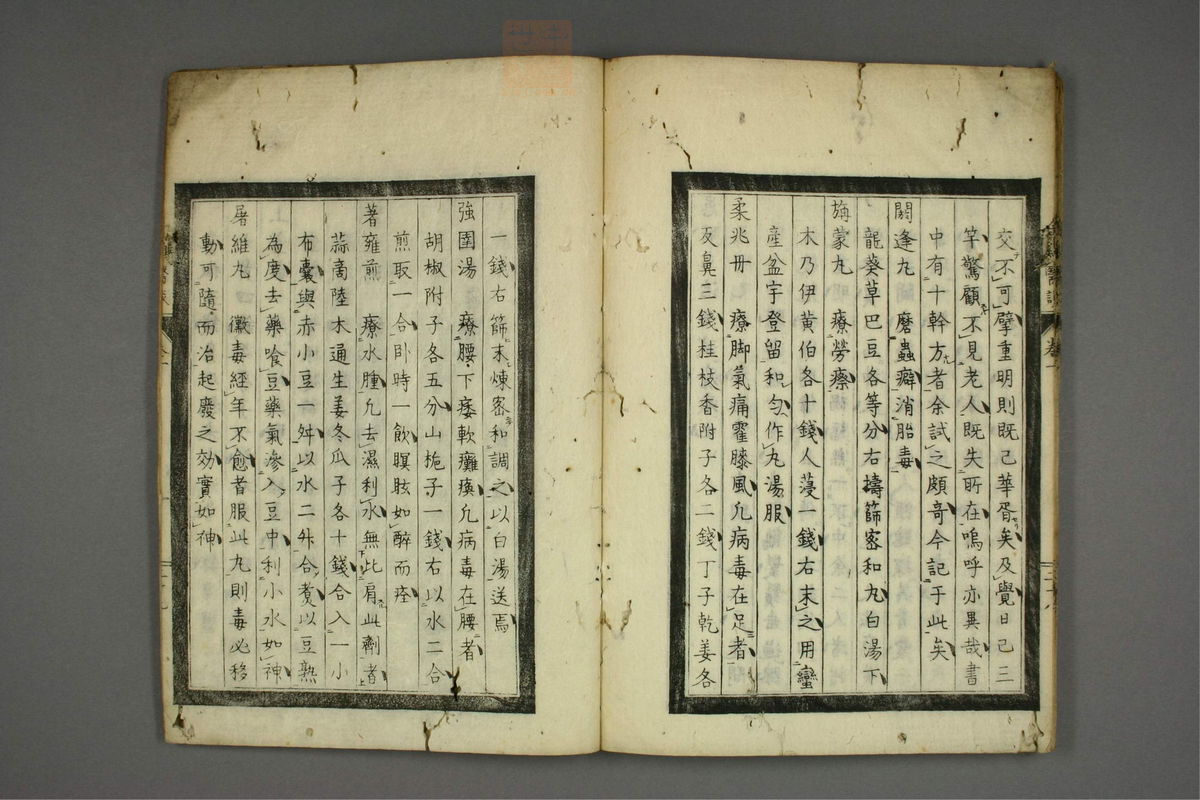 交不可擘重明則既已華胥矣及覺日已三
竿驚顧不見老人既失所在嗚呼亦異哉書
中有十幹方者余試之頗奇今記于此矣
閼逢丸 磨蟲癖消胎毒
龍葵草巴豆各等分右擣篩密和丸白湯下
旃蒙丸 療勞瘵
木乃伊黄伯各十錢人蓡一錢右末之用蠻
產盆宇登留和匀作丸湯服
柔兆丹 療脚氣痛霍膝風凢病毒在足者
反鼻三錢桂枝香附子各二錢丁子乾姜各
一錢右篩末煉密和調之以白湯送焉
強圉湯 療腰下痿軟癱瘓凢病毒在腰者
胡椒附子各五分山梔子一錢右以水二合
煎取一合卧時一飲瞑眩如醉而痊
著雍煎 療水腫凢去濕利水無此肩此劑者
蒜商陸木通生姜冬瓜子各十錢合入一小
布囊與赤小豆一舛以水二舛合煑以豆熟
為度去藥喰豆藥氣滲入豆中利小水如神
屠維丸 黴毒經年不愈者服此丸則毒必移
動可隨而治起廢之効實如神